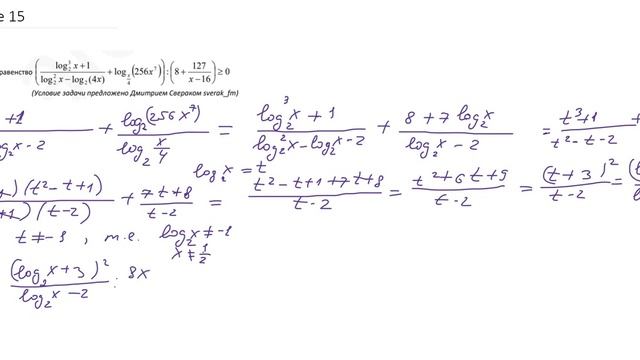 е 15
равенство ( (log₂³x + 1)/(log₂²x − log₂(4x)) + log_{x/4}(256x⁷) ) : ( 8 + 127/(x − 16) ) ≥ 0
(Условие задачи предложено Дмитрием Свераком sverak_fm)
+1/(log₂x − 2) + log₂(256x⁷)/log₂(x/4) = (log₂³x + 1)/(log₂²x − log₂x − 2) + (8 + 7log₂x)/(log₂x − 2) = (t³+1)/(t² − t − 2) +
log₂x = t
(t² − t + 1)/(t − 2) + (7t + 8)/(t − 2) = (t² − t + 1 + 7t + 8)/(t − 2) = (t² + 6t + 9)/(t − 2) = (t + 3)²/(t − 2) =
t ≠ −1, т.е. log₂x ≠ −1
x ≠ 1/2
(log₂x + 3)²/(log₂x − 2) : 8x